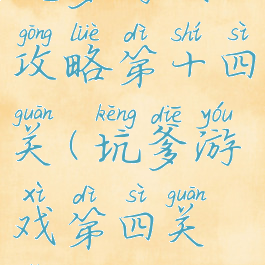 gōng lüè dì shí sì
攻略第十四
guān kēng diē yóu
关（坑爹游
xì dì sì guān
戏第四关